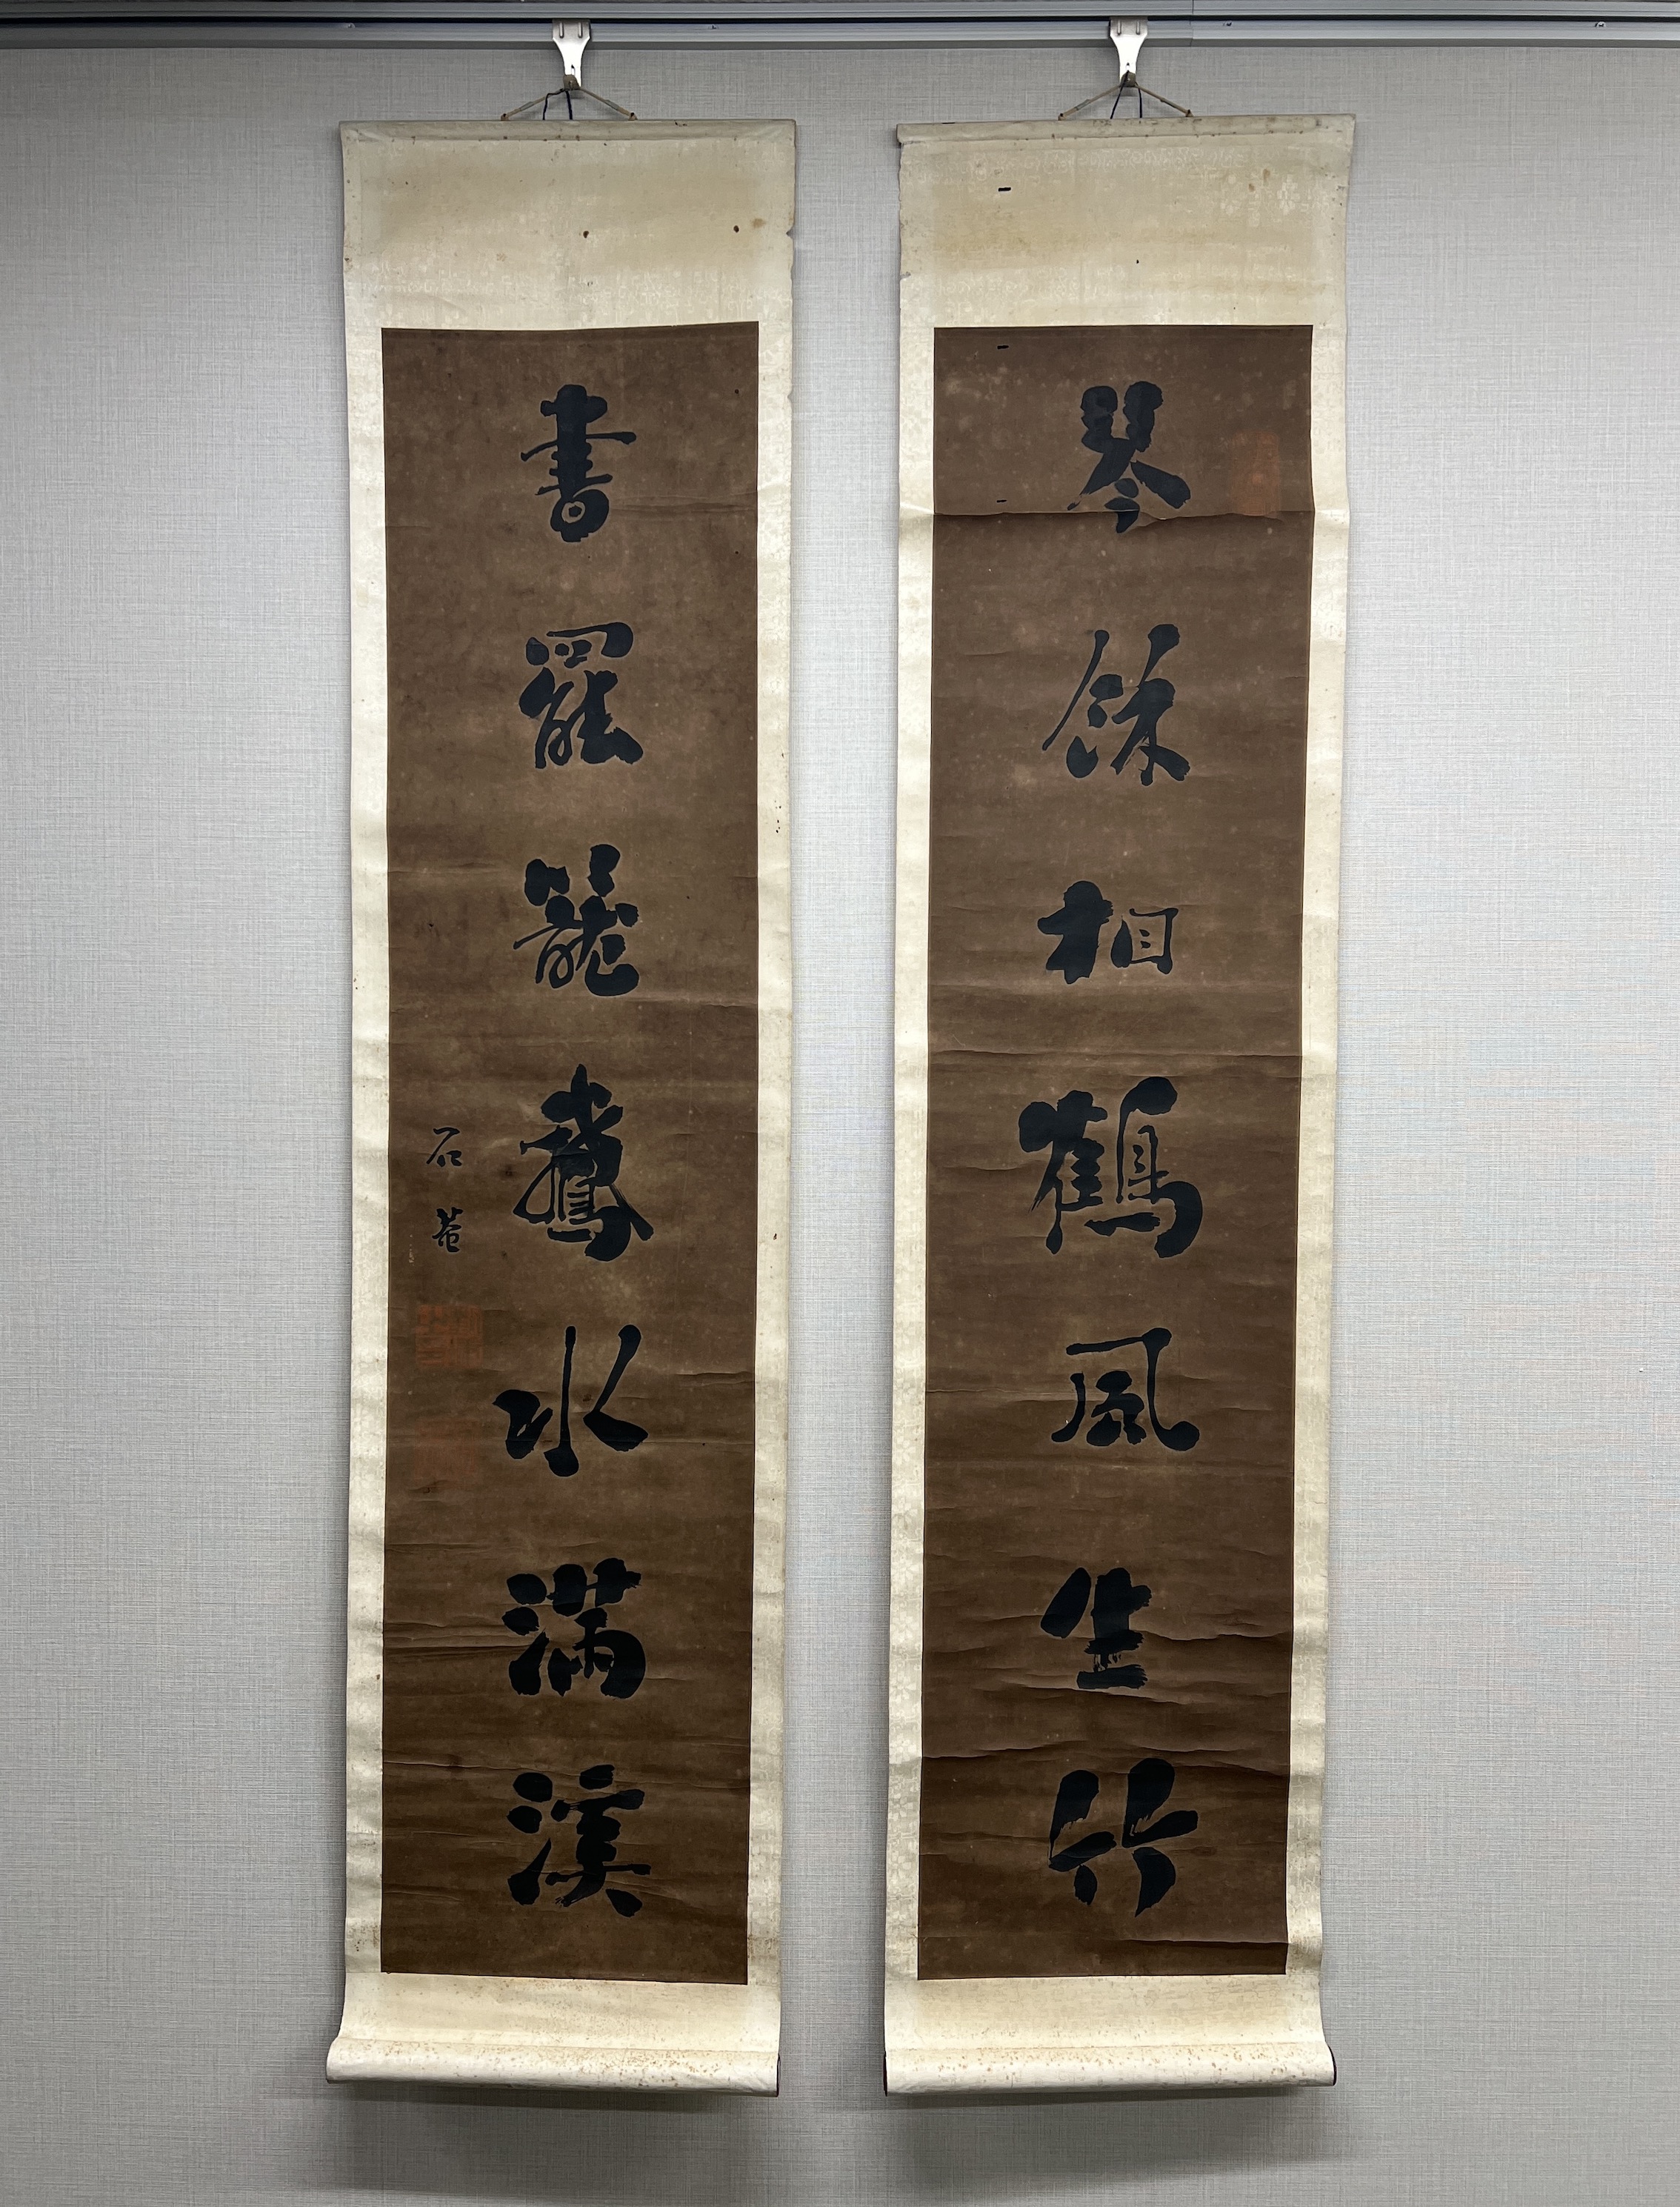 琴餘相鶴風生竹
書罷籠鵞水滿溪
石菴